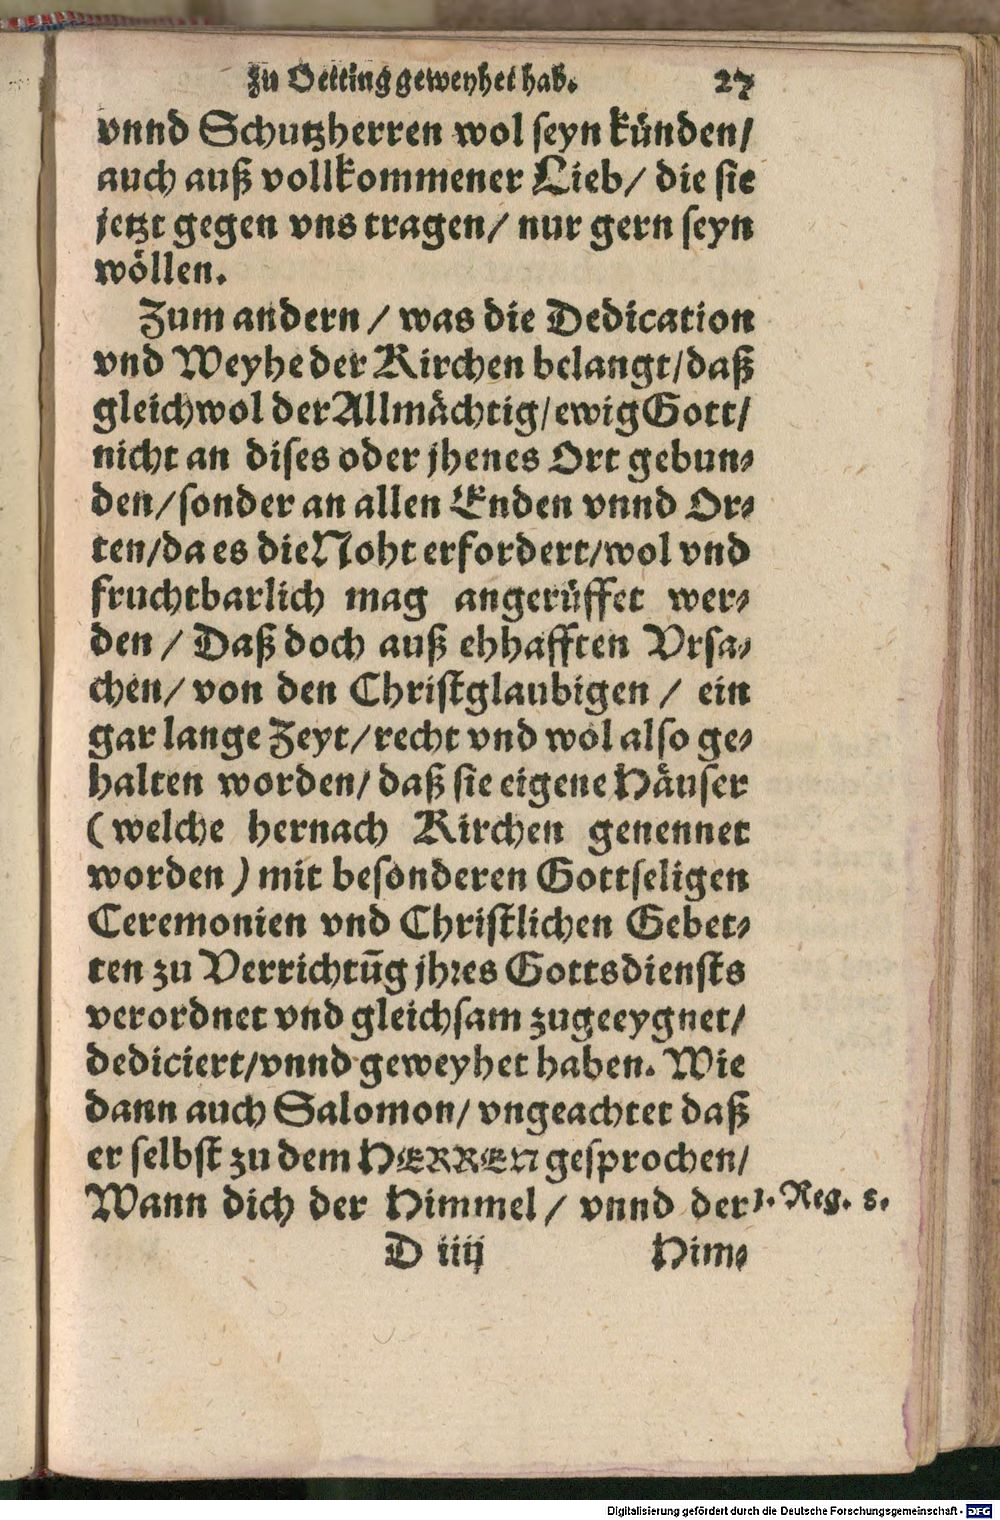 zu Oetting geweyhet hab. 27
vnnd Schutzherren wol seyn künden/
auch auß vollkommener Lieb/ die sie
jetzt gegen vns tragen/ nur gern seyn
wöllen.
Zum andern / was die Dedication
vnd Weyhe der Kirchen belangt/daß
gleichwol der Allmächtig/ewig Gott/
nicht an dises oder jhenes Ort gebun⸗
den/sonder an allen Enden vnnd Or⸗
ten/da es die Noht erfordert/wol vnd
fruchtbarlich mag angerüffet wer⸗
den / Daß doch auß ehhafften Vrsa⸗
chen/ von den Christglaubigen / ein
gar lange Zeyt/recht vnd wol also ge⸗
halten worden/ daß sie eigene Häuser
( welche hernach Kirchen genennet
worden ) mit besonderen Gottseligen
Ceremonien vnd Christlichen Gebet⸗
ten zu Verrichtūg jhres Gottsdiensts
verordnet vnd gleichsam zugeeygnet/
dediciert/vnnd geweyhet haben. Wie
dann auch Salomon/ vngeachtet daß
er selbst zu dem HERREN gesprochen/
Wann dich der Himmel / vnnd der 1. Reg. 8.
D iiij Him⸗
Digitalisierung gefördert durch die Deutsche Forschungsgemeinschaft - DFG